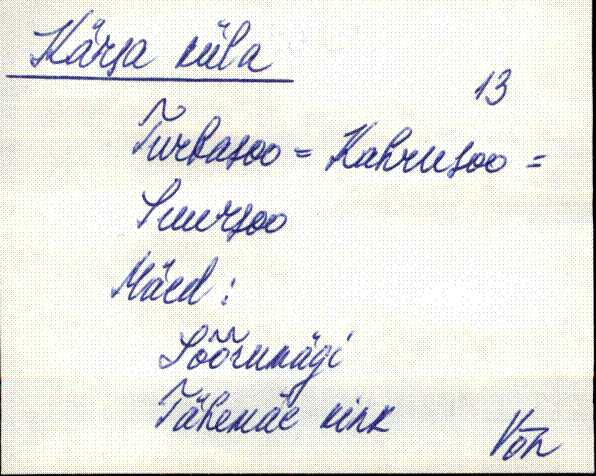 Kärsa küla
13
Turbasoo = Kahrusoo =
Suursoo
Mäed:
Sõõrumägi
Tähemäe kink
Võn